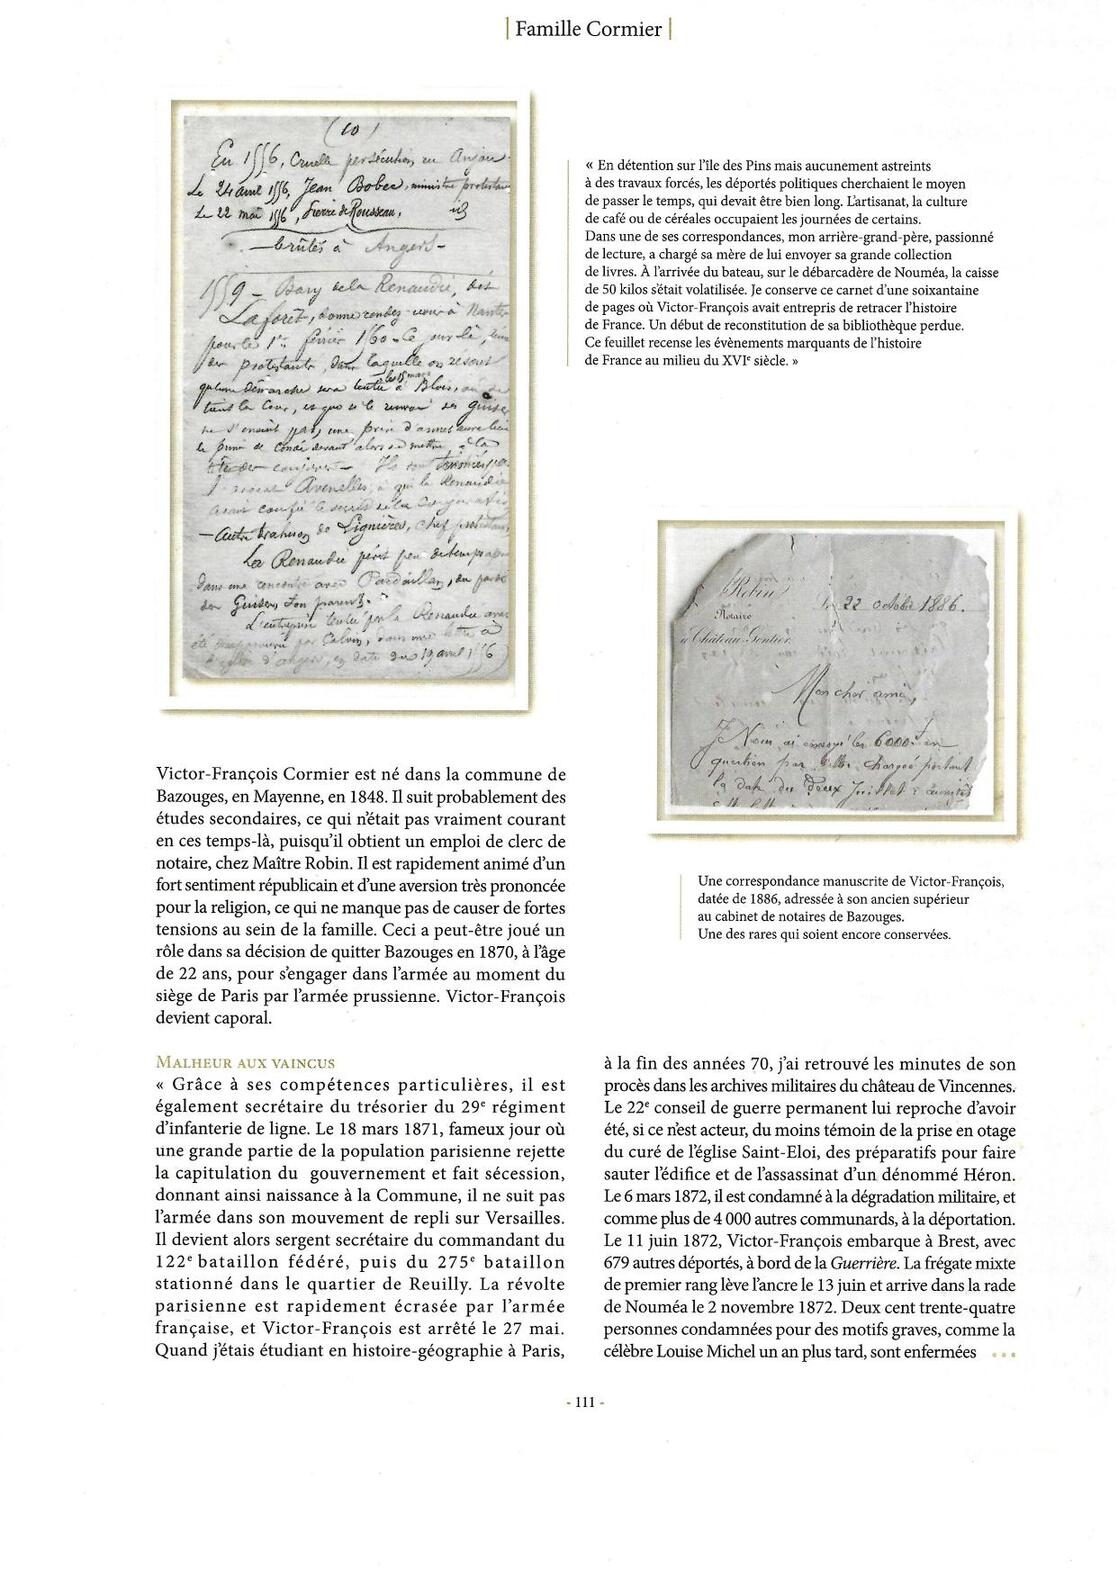 Famille Cormier
(10)
En 1556, Cruelle persécution en Anjou
Le 24 avril 1556, Jean Bobec, ministre protestant
Le 22 mai 1556, Pierre de Rousseau,
— brûlés à Angers —
1559 — Bary de la Renaudie, dit
Laforêt, donne rendez-vous à Nantes
pour le 1er février 1560
des protestants, dans laquelle on résout
qu'une démarche sera tentée le 15 mars à Blois,
tient la Cour, et que si le renvoi des Guises
ne s'ensuit pas, une prise d'armes aura lieu
le prince de Condé devant alors se mettre à la
tête des
Avenelles, à qui la Renaudie
avait confié le secret de la
— Autre trahison de Lignières, chef protestant
La Renaudie périt peu de temps
dans une rencontre avec Pardaillan, du parti
des Guises, son parent.
L'entreprise tentée par la Renaudie avait
été par Calvin, dans une lettre à
d'Angers, en date du 19 avril 1556
« En détention sur l'île des Pins mais aucunement astreints
à des travaux forcés, les déportés politiques cherchaient le moyen
de passer le temps, qui devait être bien long. L'artisanat, la culture
de café ou de céréales occupaient les journées de certains.
Dans une de ses correspondances, mon arrière-grand-père, passionné
de lecture, a chargé sa mère de lui envoyer sa grande collection
de livres. À l'arrivée du bateau, sur le débarcadère de Nouméa, la caisse
de 50 kilos s'était volatilisée. Je conserve ce carnet d'une soixantaine
de pages où Victor-François avait entrepris de retracer l'histoire
de France. Un début de reconstitution de sa bibliothèque perdue.
Ce feuillet recense les évènements marquants de l'histoire
de France au milieu du XVIe siècle. »
Robin
Notaire
à Château-Gontier
22 octobre 1886.
Mon cher ami,
Je vous ai envoyé les 6000f en
question par lettre chargée portant
la date du deux Juillet
Une correspondance manuscrite de Victor-François,
datée de 1886, adressée à son ancien supérieur
au cabinet de notaires de Bazouges.
Une des rares qui soient encore conservées.
Victor-François Cormier est né dans la commune de
Bazouges, en Mayenne, en 1848. Il suit probablement des
études secondaires, ce qui n'était pas vraiment courant
en ces temps-là, puisqu'il obtient un emploi de clerc de
notaire, chez Maître Robin. Il est rapidement animé d'un
fort sentiment républicain et d'une aversion très prononcée
pour la religion, ce qui ne manque pas de causer de fortes
tensions au sein de la famille. Ceci a peut-être joué un
rôle dans sa décision de quitter Bazouges en 1870, à l'âge
de 22 ans, pour s'engager dans l'armée au moment du
siège de Paris par l'armée prussienne. Victor-François
devient caporal.
MALHEUR AUX VAINCUS
« Grâce à ses compétences particulières, il est
également secrétaire du trésorier du 29e régiment
d'infanterie de ligne. Le 18 mars 1871, fameux jour où
une grande partie de la population parisienne rejette
la capitulation du gouvernement et fait sécession,
donnant ainsi naissance à la Commune, il ne suit pas
l'armée dans son mouvement de repli sur Versailles.
Il devient alors sergent secrétaire du commandant du
122e bataillon fédéré, puis du 275e bataillon
stationné dans le quartier de Reuilly. La révolte
parisienne est rapidement écrasée par l'armée
française, et Victor-François est arrêté le 27 mai.
Quand j'étais étudiant en histoire-géographie à Paris,
à la fin des années 70, j'ai retrouvé les minutes de son
procès dans les archives militaires du château de Vincennes.
Le 22e conseil de guerre permanent lui reproche d'avoir
été, si ce n'est acteur, du moins témoin de la prise en otage
du curé de l'église Saint-Eloi, des préparatifs pour faire
sauter l'édifice et de l'assassinat d'un dénommé Héron.
Le 6 mars 1872, il est condamné à la dégradation militaire, et
comme plus de 4 000 autres communards, à la déportation.
Le 11 juin 1872, Victor-François embarque à Brest, avec
679 autres déportés, à bord de la Guerrière. La frégate mixte
de premier rang lève l'ancre le 13 juin et arrive dans la rade
de Nouméa le 2 novembre 1872. Deux cent trente-quatre
personnes condamnées pour des motifs graves, comme la
célèbre Louise Michel un an plus tard, sont enfermées •••
- 111 -